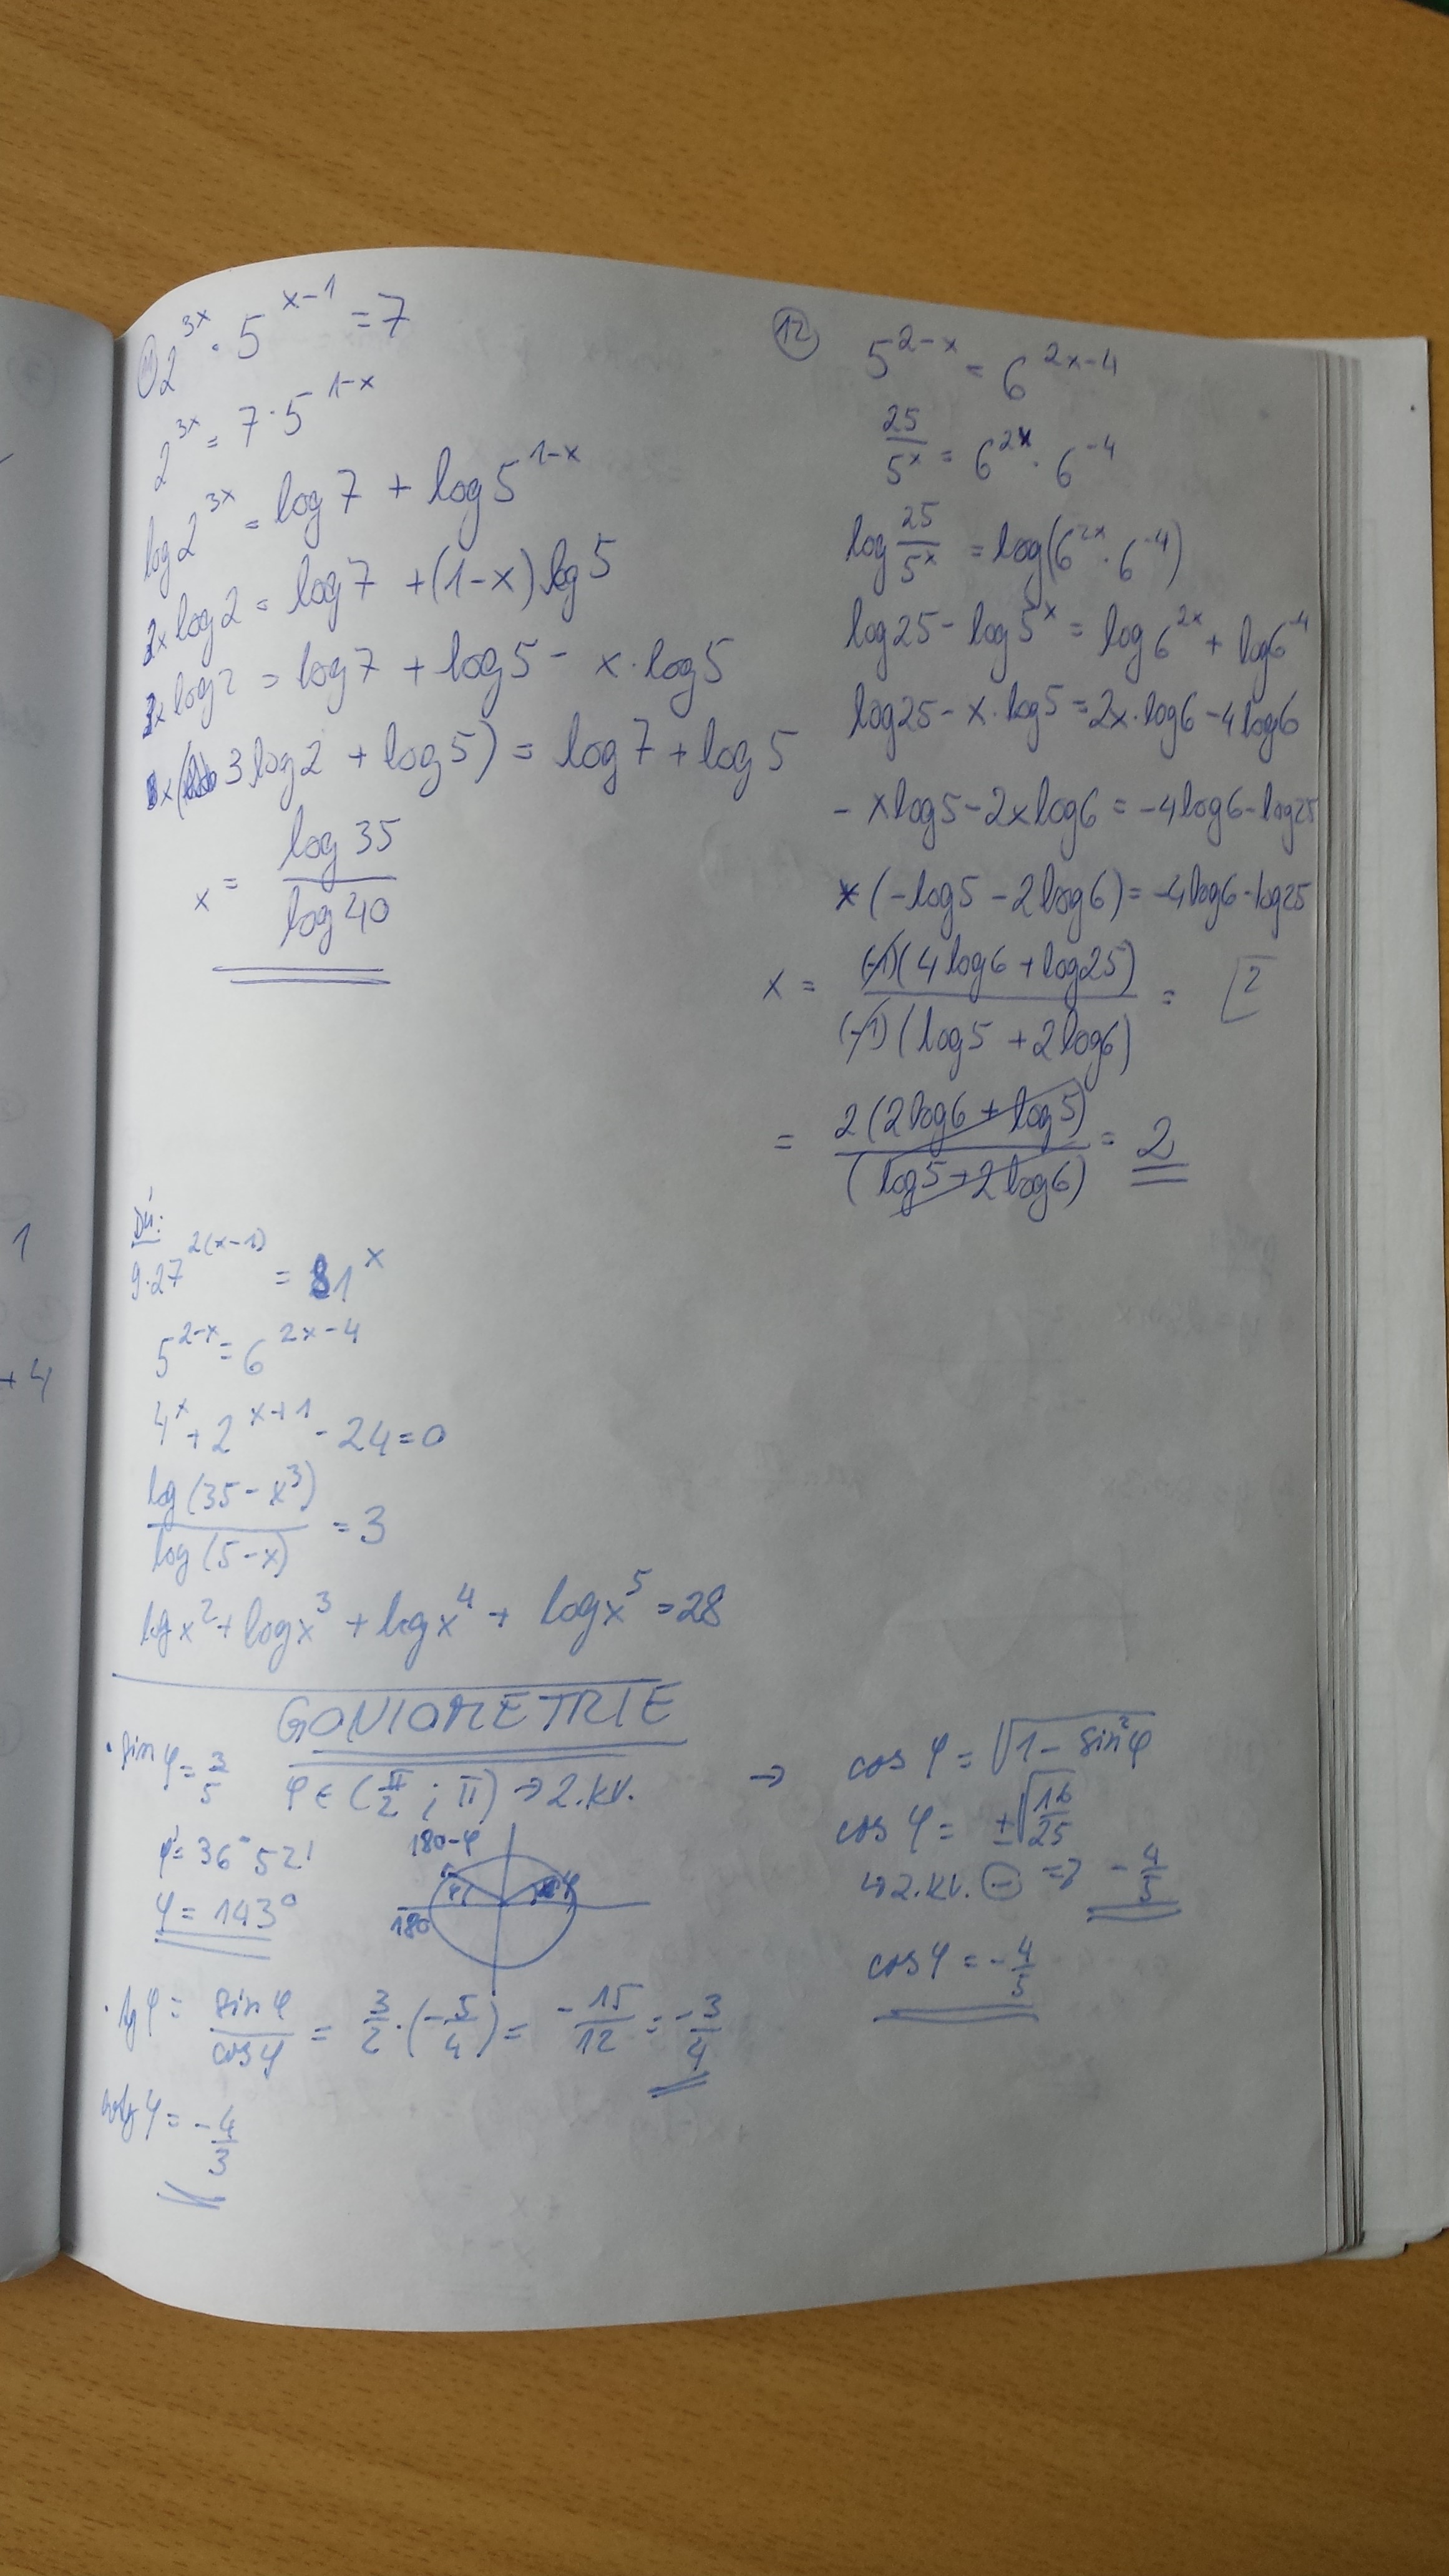 ⑪ 2^{3x} · 5^{x-1} = 7
2^{3x} = 7 · 5^{1-x}
log 2^{3x} = log 7 + log 5^{1-x}
3x log 2 = log 7 + (1-x) log 5
3x log 2 = log 7 + log 5 - x · log 5
x( 3 log 2 + log 5) = log 7 + log 5
x = \frac{log 35}{log 40}
⑫ 5^{2-x} = 6^{2x-4}
\frac{25}{5^x} = 6^{2x} · 6^{-4}
log \frac{25}{5^x} = log(6^{2x} · 6^{-4})
log 25 - log 5^x = log 6^{2x} + log 6^{-4}
log 25 - x · log 5 = 2x · log 6 - 4 log 6
- x log 5 - 2x log 6 = -4 log 6 - log 25
x (-log 5 - 2 log 6) = -4 log 6 - log 25
x = \frac{(-1)(4 log 6 + log 25)}{(-1)(log 5 + 2 log 6)} = 2
= \frac{2 (2 log 6 + log 5)}{(log 5 + 2 log 6)} = 2
DÚ:
9·27^{2(x-1)} = 81^x
5^{2-x} = 6^{2x-4}
4^x + 2^{x+1} - 24 = 0
\frac{log (35 - x^3)}{log (5-x)} = 3
log x^2 + log x^3 + log x^4 + log x^5 = 28
GONIOMETRIE
· sin φ = \frac{3}{5} φ ∈ (\frac{π}{2} ; π) → 2. kv.
φ' = 36° 52'
φ = 143°
180-φ
φ'
φ
180
→ cos φ = √{1 - sin^2 φ}
cos φ = ±√{\frac{16}{25}}
↳ 2. kv. ⊖ => -\frac{4}{5}
cos φ = -\frac{4}{5}
· tg φ = \frac{sin φ}{cos φ} = \frac{3}{2} · (-\frac{5}{4}) = -\frac{15}{12} = -\frac{3}{4}
cotg φ = -\frac{4}{3}
1
+ 4